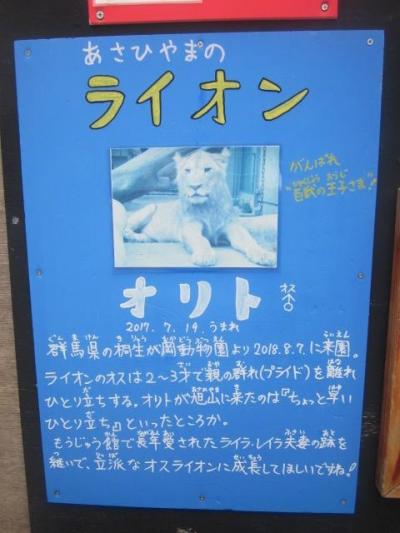 あさひやまの
ライオン
がんばれ
"百獣の王子さま"!
オリト オス♂
2017. 7. 19. うまれ
群馬県の桐生が岡動物園より2018.8.7.に来園。
ライオンのオスは2〜3才で親の群れ(プライド)を離れ
ひとり立ちする。オリトが旭山に来たのは『ちょっと早い
ひとり立ち』といったところか。
もうじゅう館で長年愛されたライラ・レイラ夫妻の跡を
継いで、立派なオスライオンに成長してほしいですね!